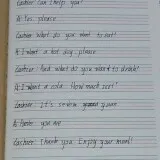 Cashier: Can I help you?
A: Yes, please
Cashier: What do you want to eat?
A: I want a hot dog, please
Cashier: And what do you want to drink?
A: I want a cola. How much is it?
Cashier: It's seven square
A: Here you are
Cashier: Thank you. Enjoy your meal!